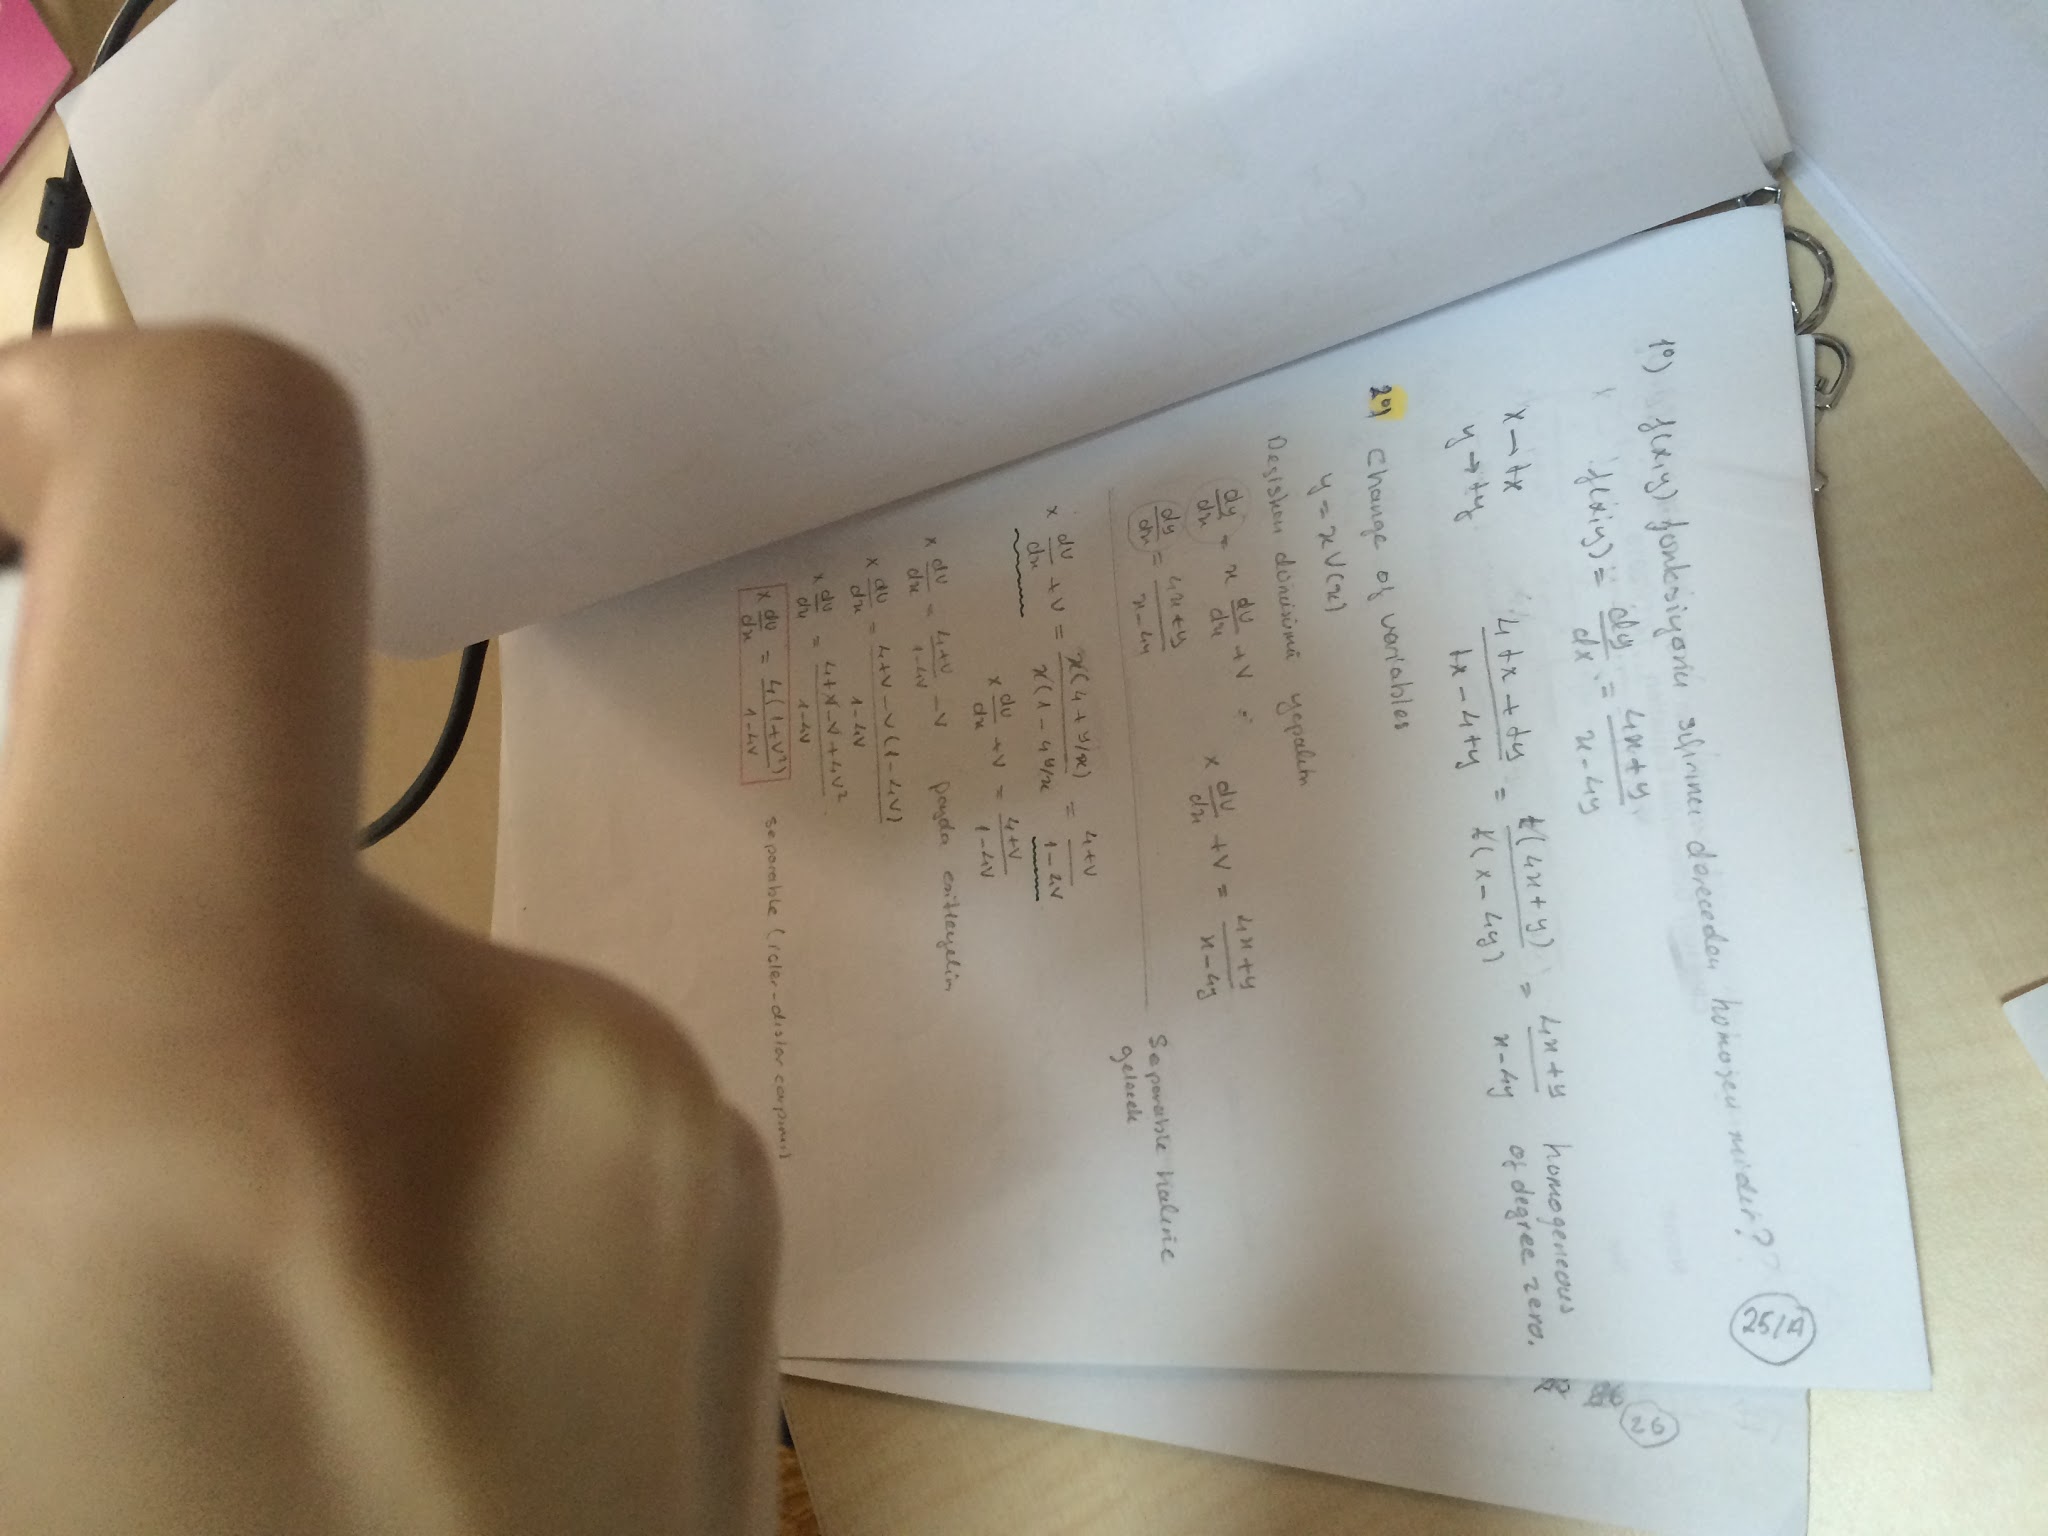 25/A
1°) f(x,y) fonksiyonu sıfırıncı dereceden homojen midir?
f(x,y) = dy/dx = 4x+y / x-4y
x → tx
y → ty
4tx + ty / tx - 4ty = t(4x+y) / t(x-4y) = 4x+y / x-4y homogeneous of degree zero.
2°) Change of variables
y = x V(x)
Degisken dönüsümü yapalım
dy/dx = x dv/dx + v
x dv/dx + v = 4x+y / x-4y
dy/dx = 4x+y / x-4y
Separable haline
gelecek
x dv/dx + v = x(4+y/x) / x(1-4y/x) = 4+v / 1-4v
x dv/dx + v = 4+v / 1-4v
x dv/dx = 4+v / 1-4v - v payda esitleyelim
x dv/dx = 4+v-v(1-4v) / 1-4v
x dv/dx = 4+v-v+4v² / 1-4v
x dv/dx = 4(1+v²) / 1-4v separable (icler-dıslar carpımı)
26